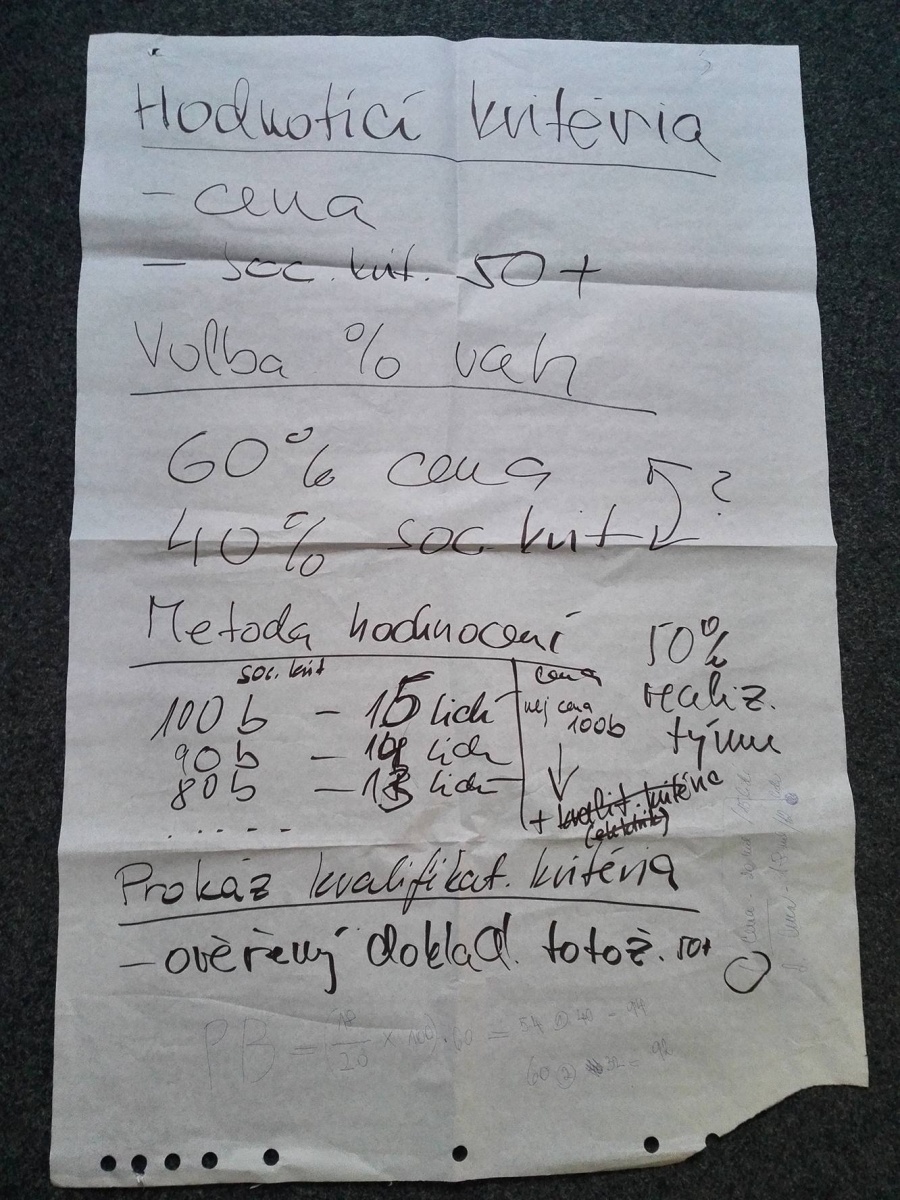 Hodnotící kritéria
- cena
- soc. krit. 50+
Volba % vah
60% cena
40% soc. krit ?
Metoda hodnocení
soc. krit
100 b - 15 lidí
90 b - 14 lidí
80 b - 13 lidí
. . . . .
cena
nej cena
100b
+ kvalit. kritéria
50%
realiz.
týmu
Prokaz kvalifikat. kritéria
- ověřený doklad. totož. 50+
PB = 18/20 × 100).60 = 54 ① 40 - 94
60 ② 32 = 92